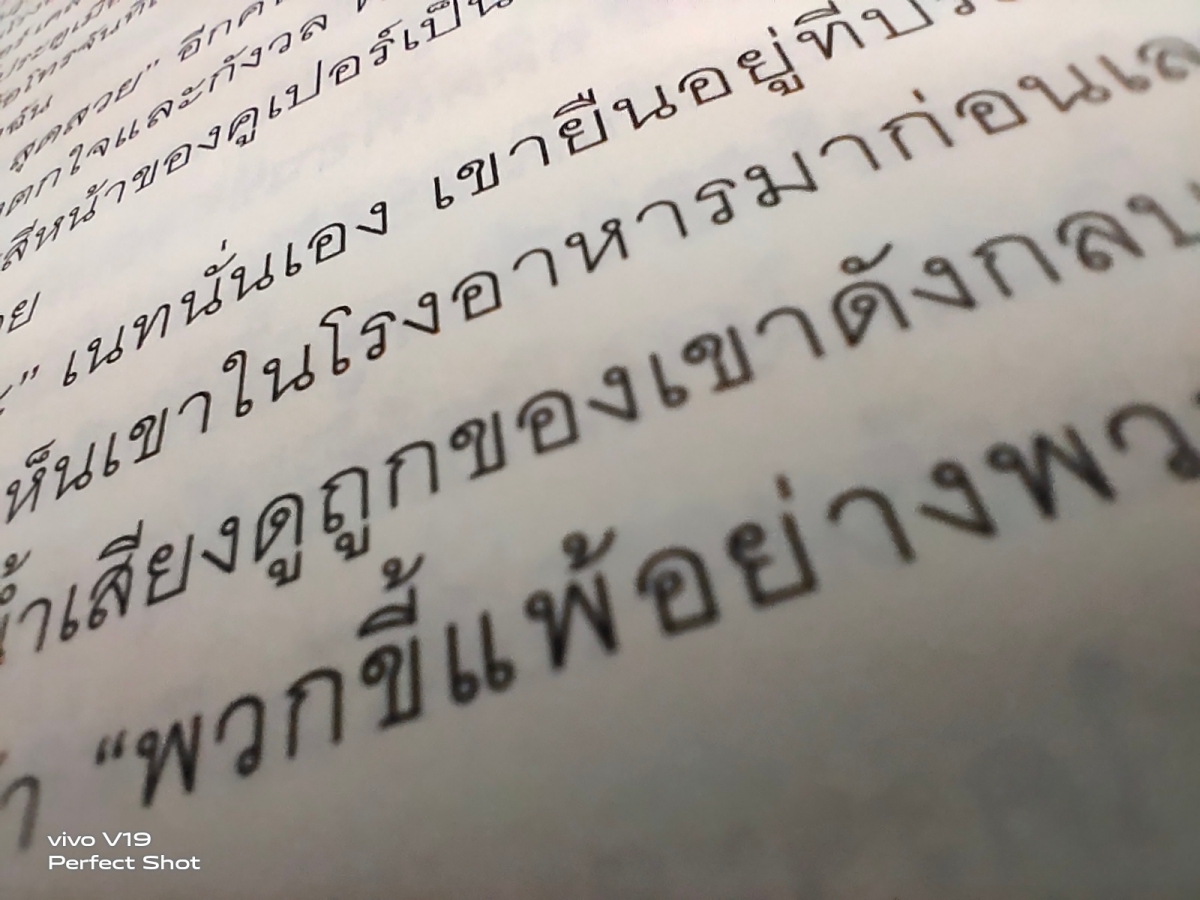 สูดสวย" อีกค
ตกใจและกังวล
สีหน้าของคูเปอร์เป็น
" เนทนั่นเอง เขายืนอยู่ที่ประ
ห็นเขาในโรงอาหารมาก่อนเล
น้ำเสียงดูถูกของเขาดังกลบ
"พวกขี้แพ้อย่างพว
vivo V19
Perfect Shot